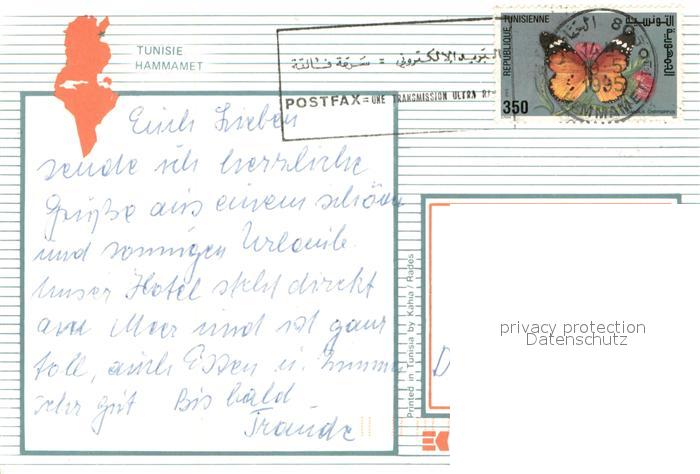 TUNISIE
HAMMAMET
البريد الإلكتروني = سرعة فائقة
POSTFAX = UNE TRANSMISSION ULTRA
REPUBLIQUE TUNISIENNE
الجمهورية التونسية
350
1995
HAMMAMET
Euch Lieben
sende ich herzliche
Grüße aus einem schönen
und sonnigen Urlaub.
Unser Hotel steht direkt
am Meer und ist ganz
toll, auch Essen u. Zimmer
sehr gut Bis bald
Traude
Printed in Tunisia by Kahia / Rades
privacy protection
Datenschutz
D